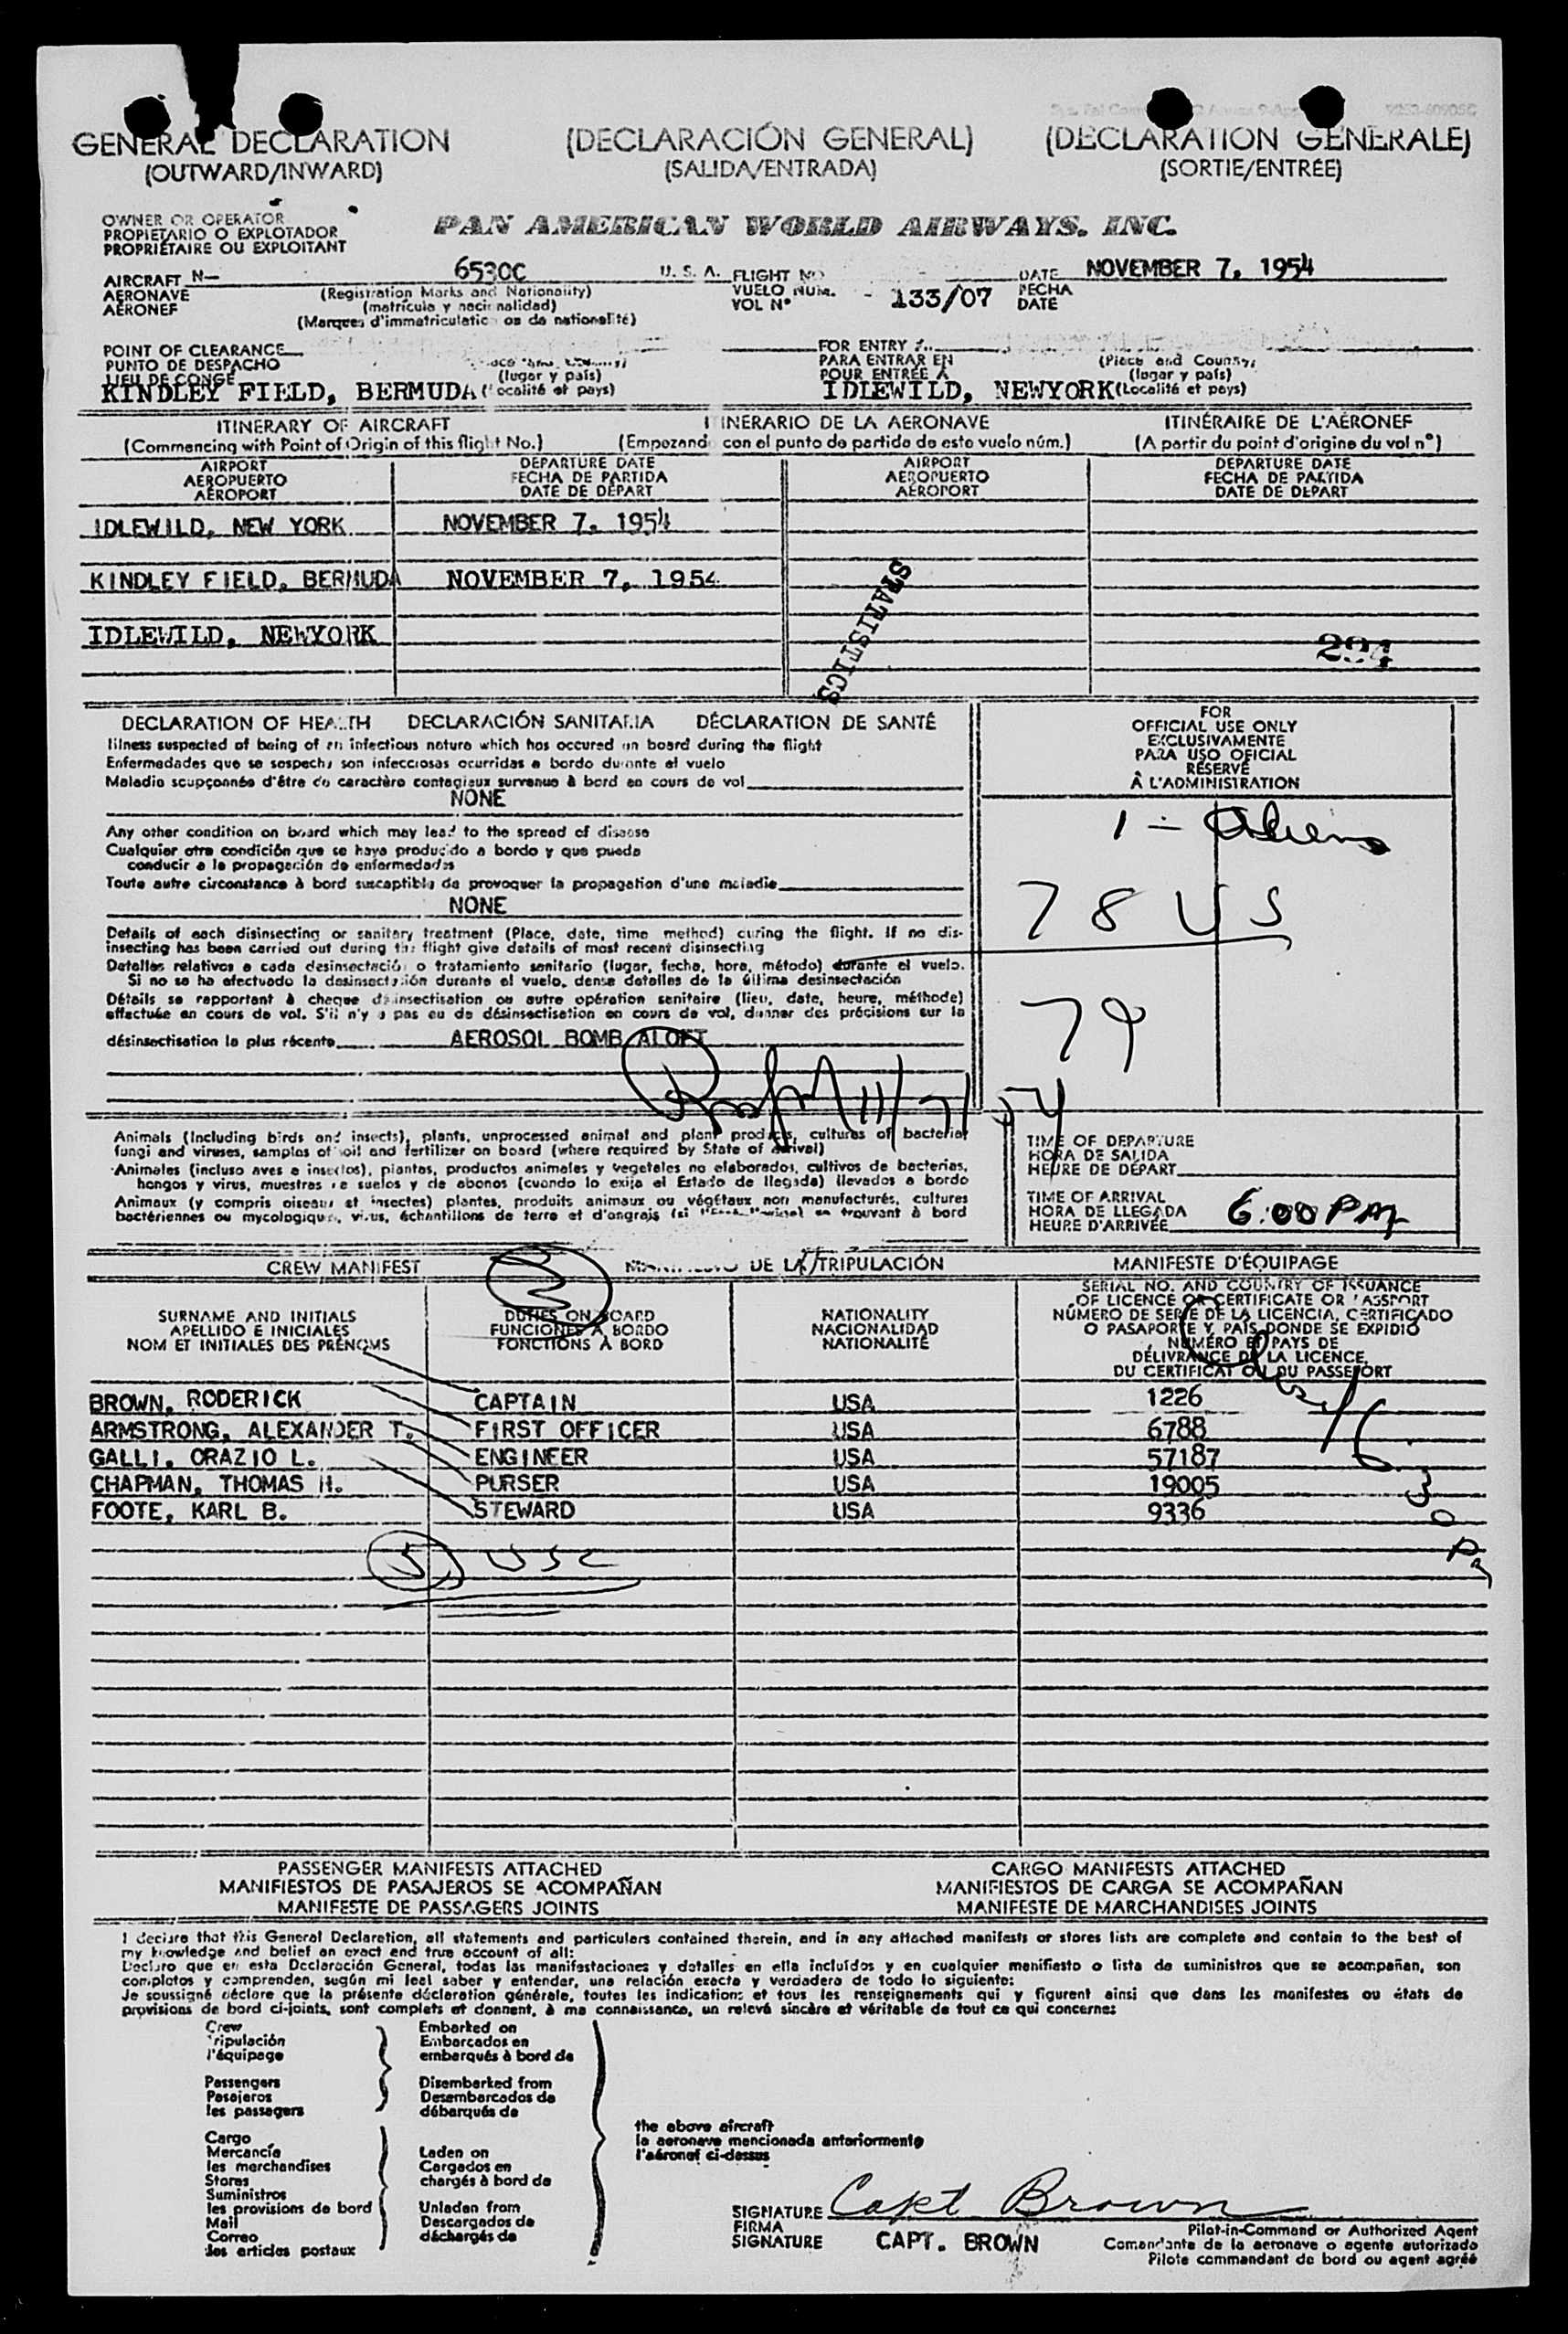 GENERAL DECLARATION (DECLARACIÓN GENERAL) (DECLARATION GÉNÉRALE)
(OUTWARD/INWARD) (SALIDA/ENTRADA) (SORTIE/ENTRÉE)
OWNER OR OPERATOR
PROPIETARIO O EXPLOTADOR
PROPRIÉTAIRE OU EXPLOITANT
PAN AMERICAN WORLD AIRWAYS. INC.
AIRCRAFT N— 6530C U. S. A.
AERONAVE
AÉRONEF
(Registration Marks and Nationality)
(matrícula y nacionalidad)
(Marques d'immatriculation ou de nationalité)
FLIGHT NO
VUELO NUM. - 133/07
VOL N°
DATE NOVEMBER 7, 1954
FECHA
DATE
POINT OF CLEARANCE
PUNTO DE DESPACHO
LIEU DE CONGÉ
(lugar y país)
KINDLEY FIELD, BERMUDA (Localité et pays)
FOR ENTRY
PARA ENTRAR EN
POUR ENTRÉE À
(Place and Country)
(lugar y país)
IDLEWILD, NEWYORK (Localité et pays)
ITINERARY OF AIRCRAFT ITINERARIO DE LA AERONAVE ITINÉRAIRE DE L'AÉRONEF
(Commencing with Point of Origin of this flight No.) (Empezando con el punto de partida de este vuelo núm.) (A partir du point d'origine du vol n°)
AIRPORT DEPARTURE DATE AIRPORT DEPARTURE DATE
AEROPUERTO FECHA DE PARTIDA AEROPUERTO FECHA DE PARTIDA
AÉROPORT DATE DE DÉPART AÉROPORT DATE DE DÉPART
IDLEWILD, NEW YORK NOVEMBER 7, 1954
KINDLEY FIELD, BERMUDA NOVEMBER 7, 1954
IDLEWILD, NEWYORK
STATISTICS
294
DECLARATION OF HEALTH DECLARACIÓN SANITARIA DÉCLARATION DE SANTÉ
Illness suspected of being of an infectious nature which has occured on board during the flight
Enfermedades que se sospecha son infecciosas ocurridas a bordo durante el vuelo
Maladie soupçonnée d'être de caractère contagieux survenue à bord en cours de vol
NONE
Any other condition on board which may lead to the spread of disease
Cualquier otra condición que se haya producido a bordo y que pueda
conducir a la propagación de enfermedades
Toute autre circonstance à bord susceptible de provoquer la propagation d'une maladie
NONE
Details of each disinsecting or sanitary treatment (Place, date, time method) during the flight. If no dis-
insecting has been carried out during the flight give details of most recent disinsecting
Detalles relativos a cada desinsectación o tratamiento sanitario (lugar, fecha, hora, método) durante el vuelo.
Si no se ha efectuado la desinsectación durante el vuelo, dense detalles de la última desinsectación
Détails se rapportant à cheque désinsectisation ou autre opération sanitaire (lieu, date, heure, méthode)
effectuée en cours de vol. S'il n'y a pas eu de désinsectisation en cours de vol, donner des précisions sur la
désinsectisation la plus récente AEROSOL BOMB ALOFT
11/7/54
FOR
OFFICIAL USE ONLY
EXCLUSIVAMENTE
PARA USO OFICIAL
RÉSERVÉ
À L'ADMINISTRATION
1 - Aliens
78 US
79
Animals (Including birds and insects), plants, unprocessed animal and plant products, cultures of bacteria,
fungi and viruses, samples of soil and fertilizer on board (where required by State of Arrival)
Animales (incluso aves e insectos), plantas, productos animales y vegetales no elaborados, cultivos de bacterias,
hongos y virus, muestras de suelos y de abonos (cuando lo exija el Estado de llegada) llevados a bordo
Animaux (y compris oiseaux et insectes) plantes, produits animaux ou végétaux non manufacturés, cultures
bactériennes ou mycologiques, virus, échantillons de terre et d'engrais se trouvant à bord
TIME OF DEPARTURE
HORA DE SALIDA
HEURE DE DÉPART
TIME OF ARRIVAL
HORA DE LLEGADA 6:00 PM
HEURE D'ARRIVÉE
CREW MANIFEST MANIFIESTO DE LA TRIPULACIÓN MANIFESTE D'ÉQUIPAGE
SURNAME AND INITIALS
APELLIDO E INICIALES
NOM ET INITIALES DES PRÉNOMS
DUTIES ON BOARD
FUNCIONES A BORDO
FONCTIONS À BORD
NATIONALITY
NACIONALIDAD
NATIONALITÉ
SERIAL NO. AND COUNTRY OF ISSUANCE
OF LICENCE OR CERTIFICATE OR PASSPORT
NÚMERO DE SERIE DE LA LICENCIA, CERTIFICADO
O PASAPORTE Y PAIS DONDE SE EXPIDIÓ
NUMÉRO ET PAYS DE
DÉLIVRANCE DE LA LICENCE,
DU CERTIFICAT OU DU PASSEPORT
BROWN, RODERICK CAPTAIN USA 1226
ARMSTRONG, ALEXANDER T. FIRST OFFICER USA 6788
GALLI, ORAZIO L. ENGINEER USA 57187
CHAPMAN, THOMAS H. PURSER USA 19005
FOOTE, KARL B. STEWARD USA 9336
5 USC
PASSENGER MANIFESTS ATTACHED CARGO MANIFESTS ATTACHED
MANIFIESTOS DE PASAJEROS SE ACOMPAÑAN MANIFIESTOS DE CARGA SE ACOMPAÑAN
MANIFESTE DE PASSAGERS JOINTS MANIFESTE DE MARCHANDISES JOINTS
I declare that this General Declaration, all statements and particulars contained therein, and in any attached manifests or stores lists are complete and contain to the best of
my knowledge and belief an exact and true account of all:
Declaro que en esta Declaración General, todas las manifestaciones y detalles en ella incluídos y en cualquier manifiesto o lista de suministros que se acompañan, son
completos y comprenden, según mi leal saber y entender, una relación exacta y verdadera de todo lo siguiente:
Je soussigné déclare que la présente déclaration générale, toutes les indications et tous les renseignements qui y figurent ainsi que dans les manifestes ou états de
provisions de bord ci-joints, sont complets et donnent, à ma connaissance, un relevé sincère et véritable de tout ce qui concerne:
Crew Embarked on
Tripulación Embarcados en
l'équipage embarqués à bord de
Passengers Disembarked from
Pasajeros Desembarcados de
les passagers débarqués de
the above aircraft
la aeronave mencionada anteriormente
l'aéronef ci-dessus
Cargo
Mercancía Laden on
les marchandises Cargados en
Stores chargés à bord de
Suministros
les provisions de bord Unladen from
Mail Descargados de
Correo déchargés de
les articles postaux
SIGNATURE Capt Brown
FIRMA
SIGNATURE CAPT. BROWN
Pilot-in-Command or Authorized Agent
Comandante de la aeronave o agente autorizado
Pilote commandant de bord ou agent agréé